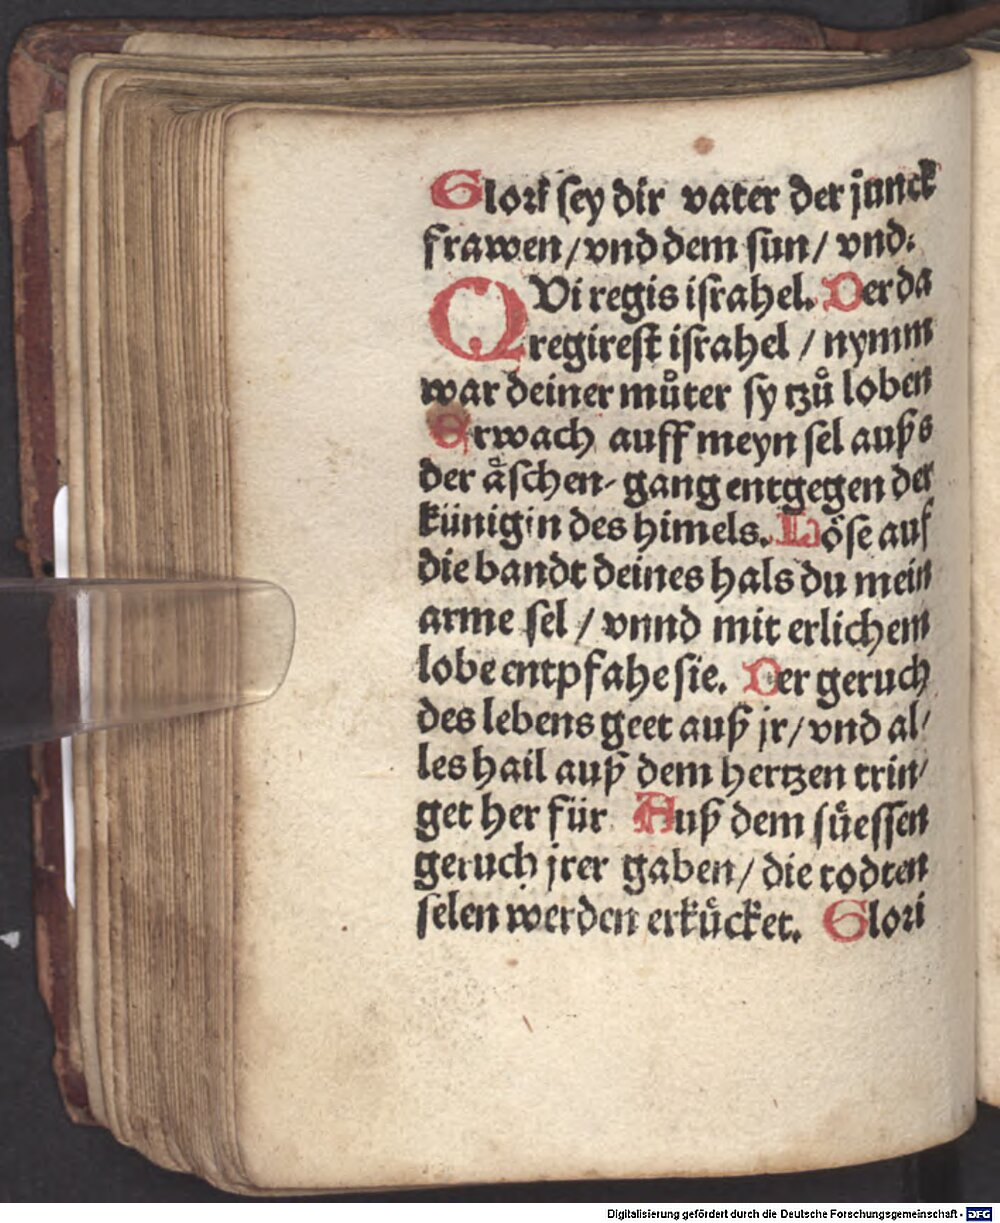 Glori sey dir vater der junck
frawen / vnd dem sun / vnd:
QVi regis israhel. Der da
regirest israhel / nymm
war deiner muͦter sy tzuͦ loben
Erwach auff meyn sel auß s
der aͤschen- gang entgegen der
künigin des himels. Löse auf
die bandt deines hals du mein
arme sel / vnnd mit erlichem
lobe entpfahe sie. Der geruch
des lebens geet auß jr / vnd al/
les hail auß dem hertzen trin/
get her für Auß dem suͤessen
geruch jrer gaben / die todten
selen werden erkuͤcket. Glori
Digitalisierung gefördert durch die Deutsche Forschungsgemeinschaft - DFG